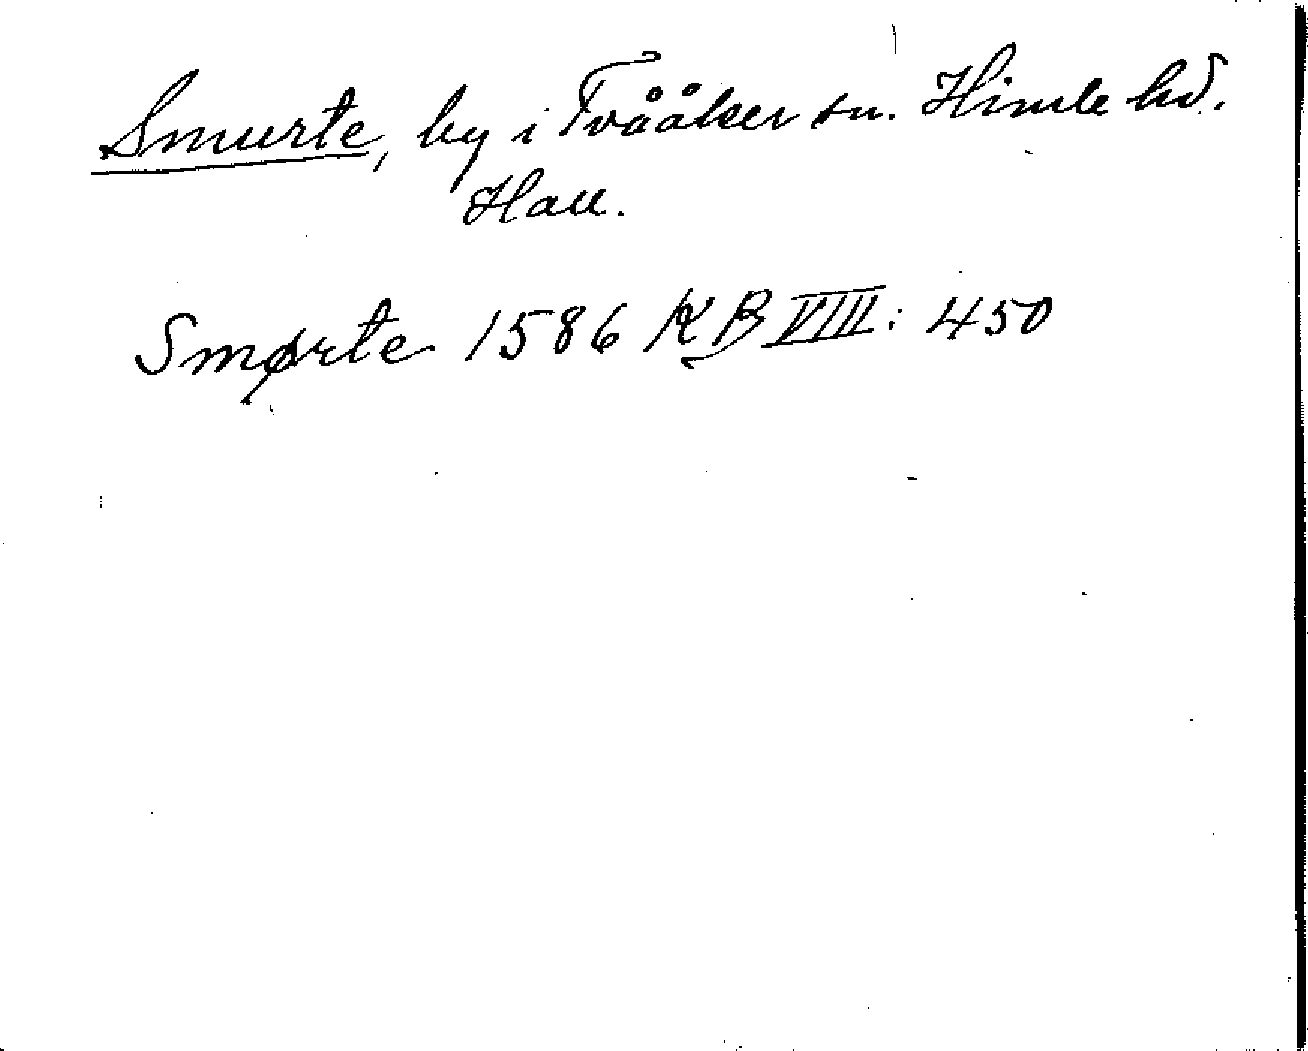 Smurte, by i Tvååker sn. Himle hd.
Hall.
Smørte 1586 KB VIII: 450